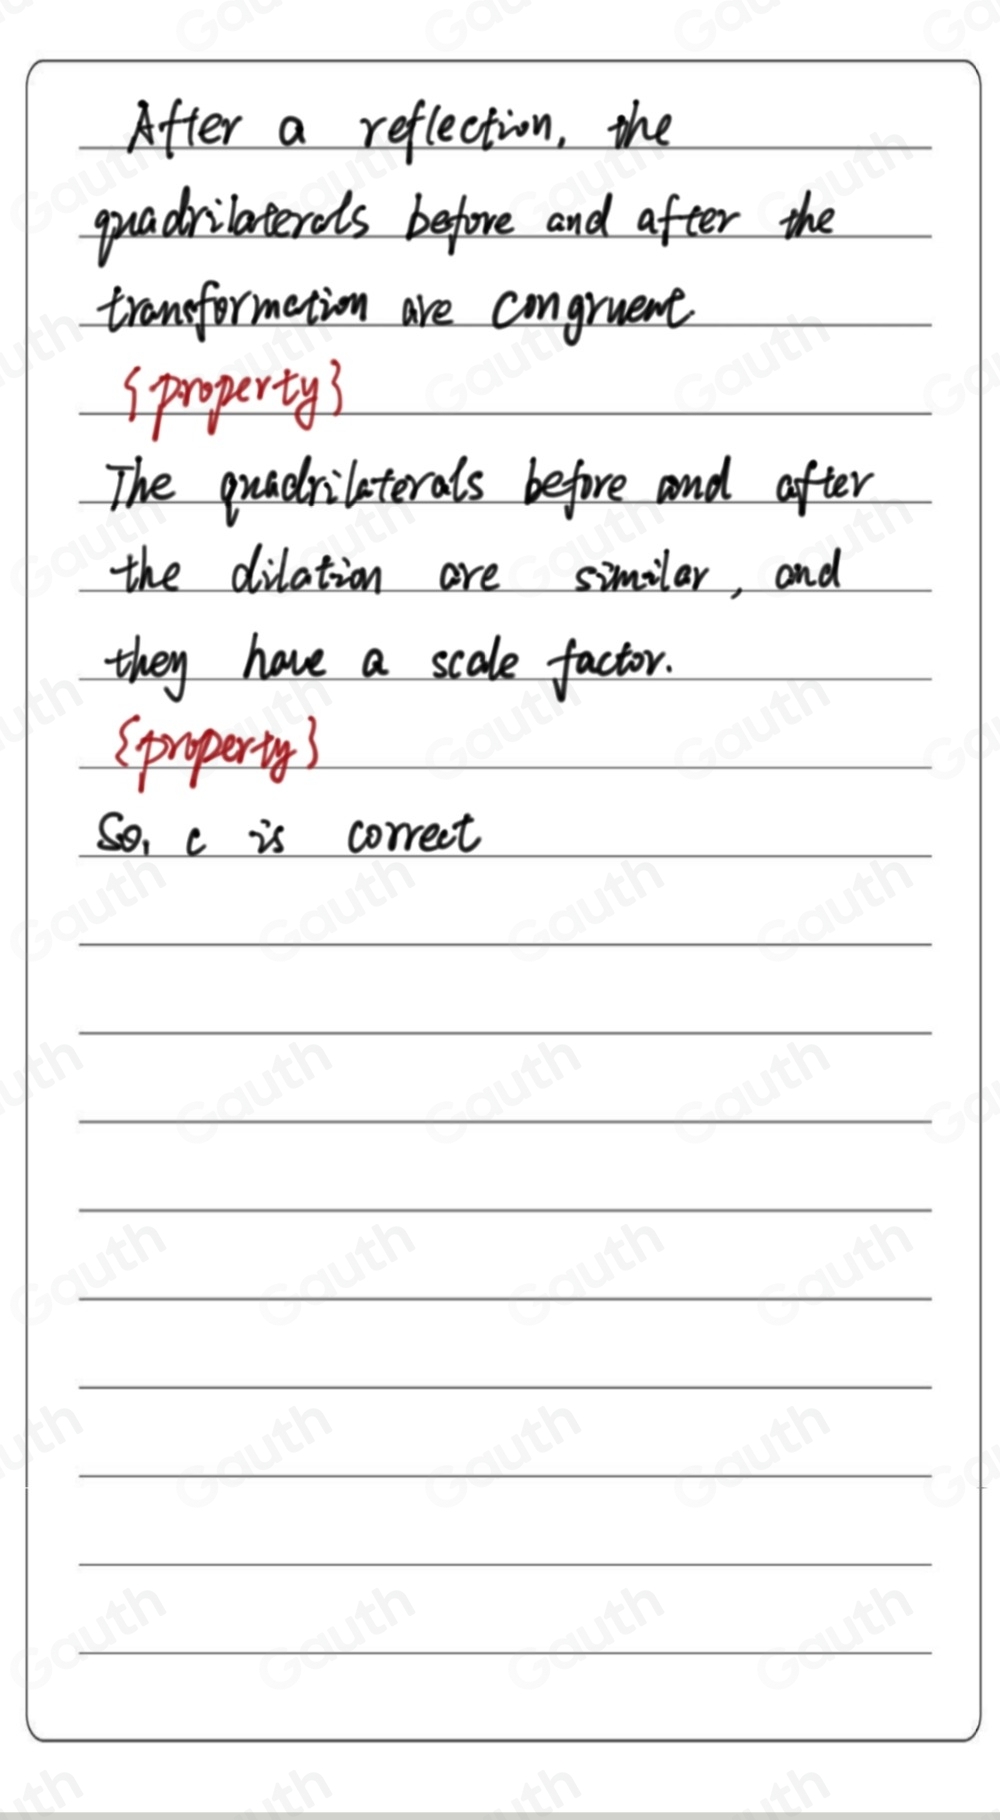 After a reflection, the
quadrilaterals before and after the
transformation are congruent.
{property}
The quadrilaterals before and after
the dilation are similar, and
they have a scale factor.
{property}
So, c is correct